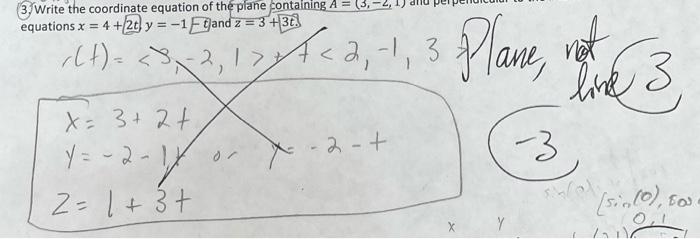 3. Write the coordinate equation of the plane containing A = (3, −2, 1) and
equations x = 4 + 2t, y = −1 − t and z = 3 + 3t.
r(t) = <3, -2, 1> + t <2, -1, 3
Plane, not line
3
x = 3 + 2t
y = -2 - 1t or y = -2 - t
z = 1 + 3t
-3
[sin(0),
0, 1
x y